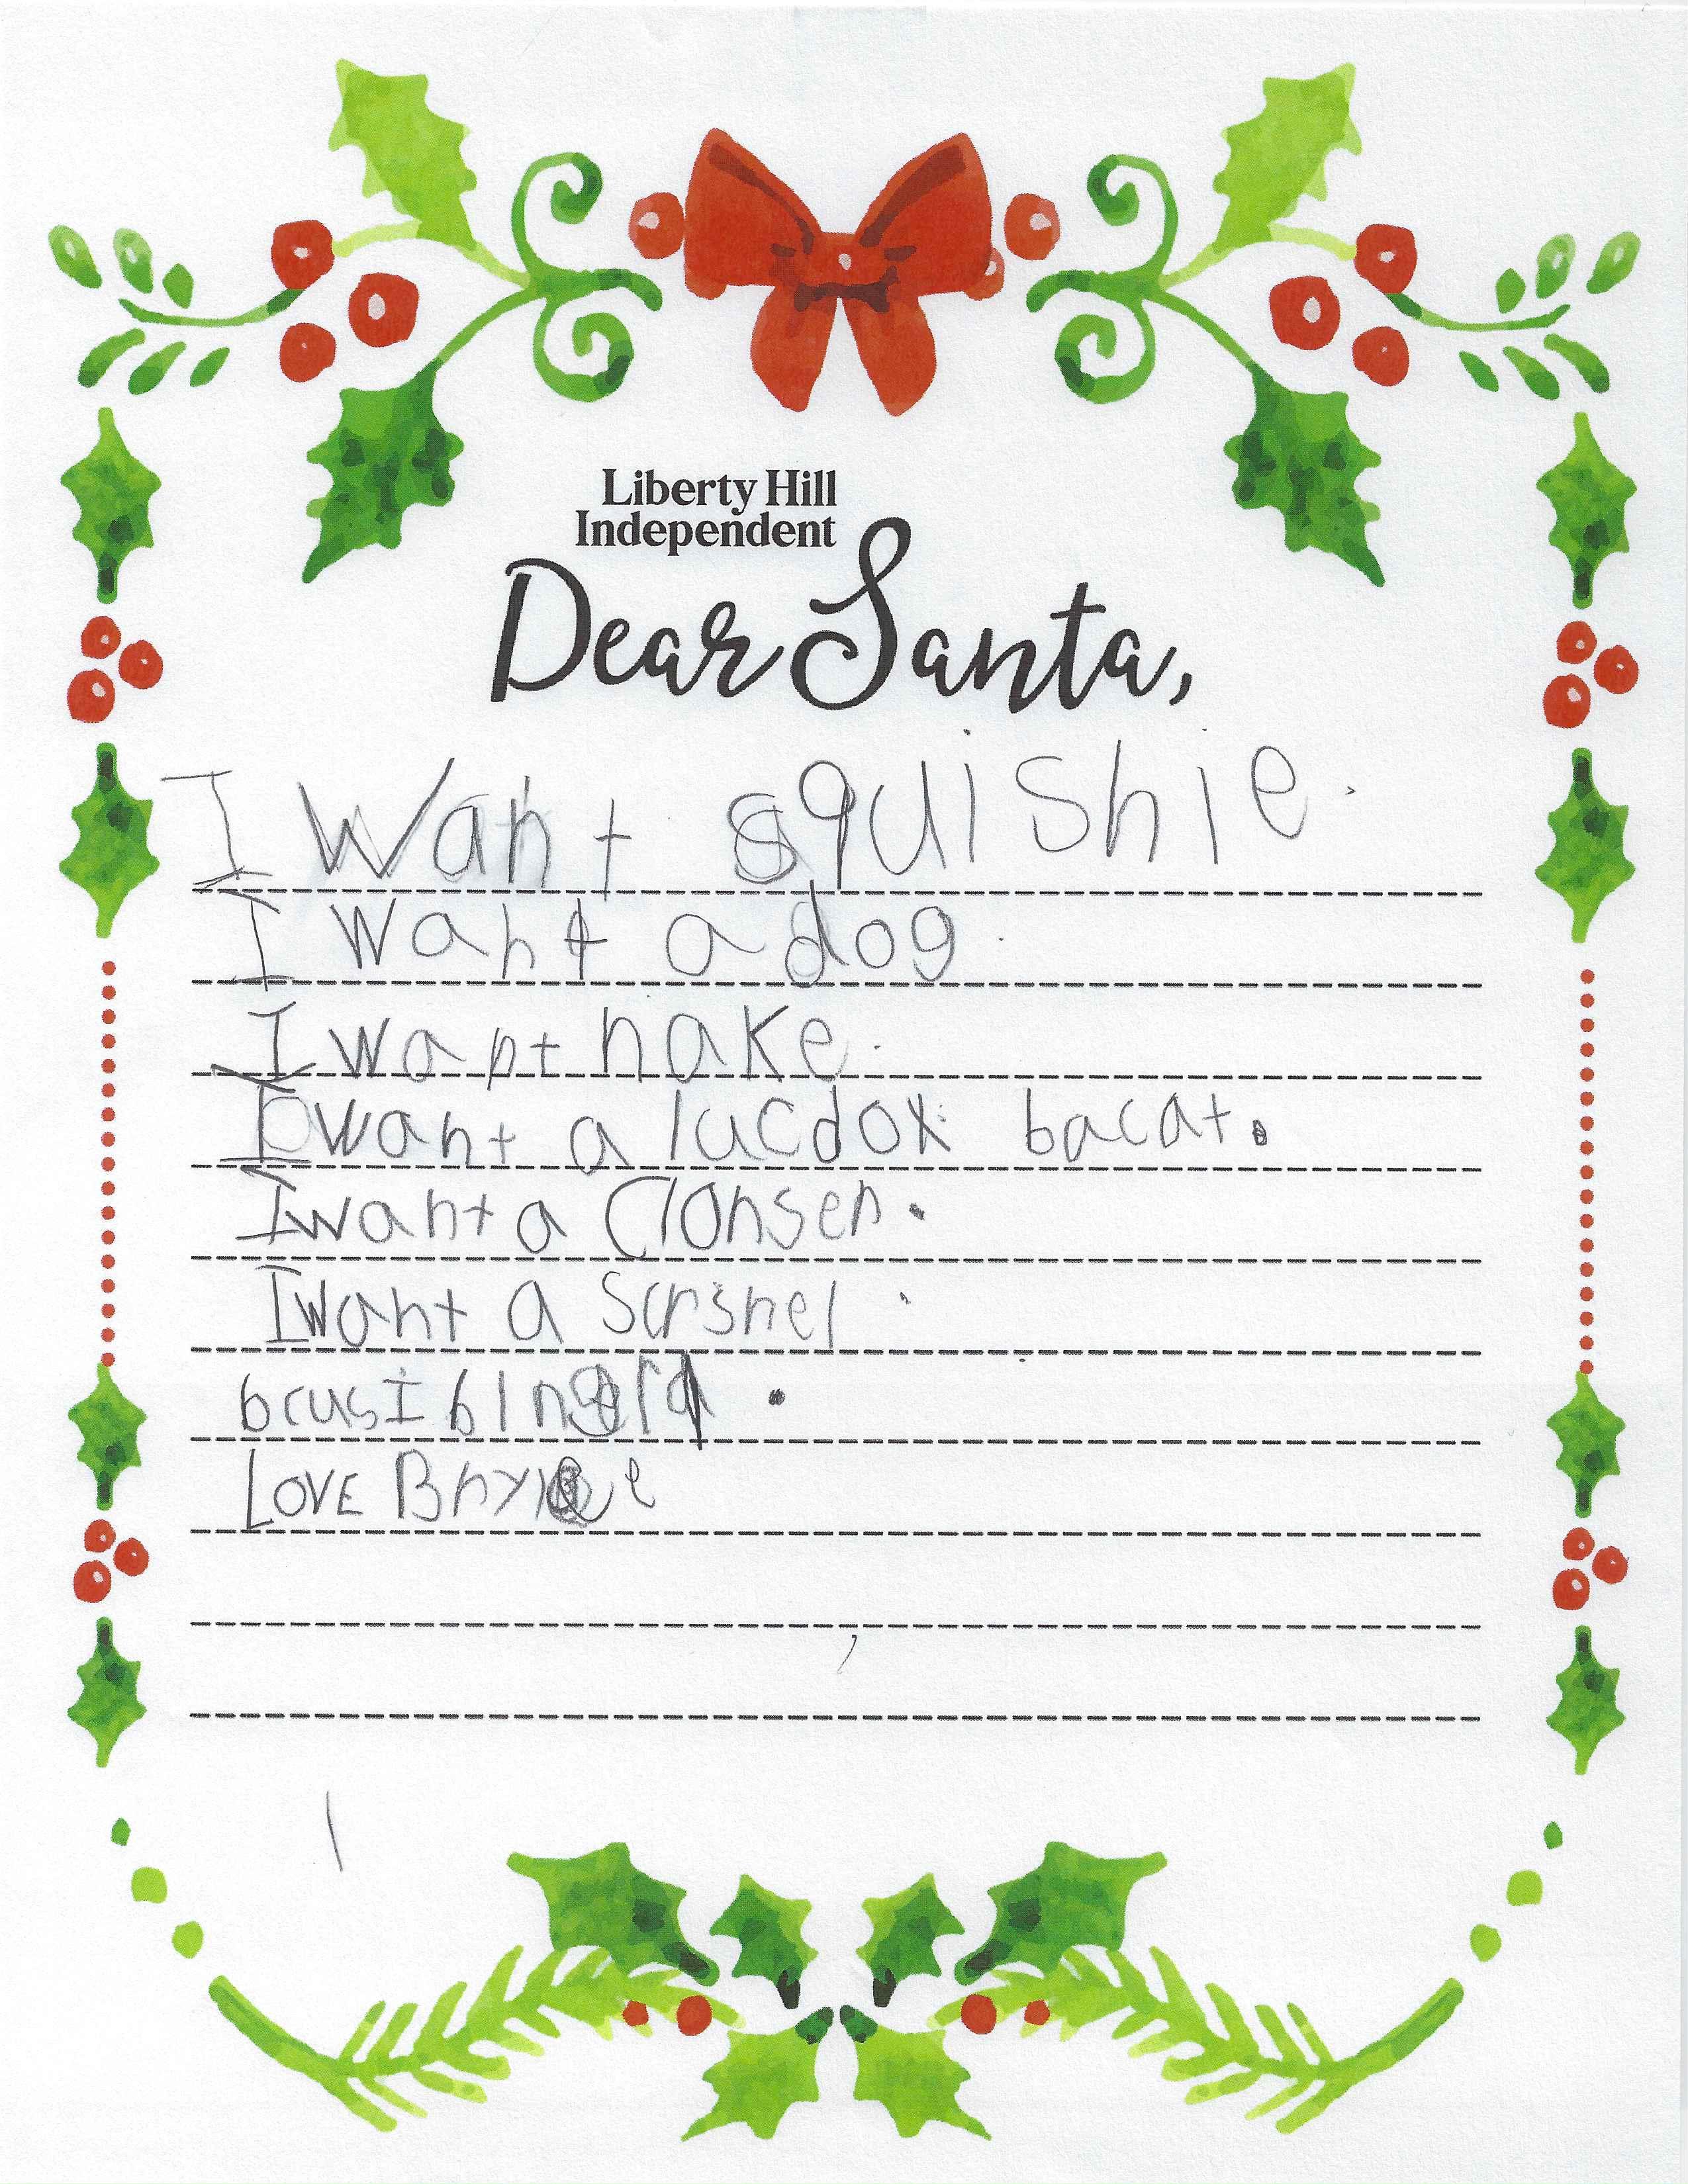 Liberty Hill
Independent
Dear Santa,
I Want squishie.
I want a dog.
I want nake.
I want a lucdox bacat.
I want a Clonser.
I want a scrsnel.
brusI
LOVE